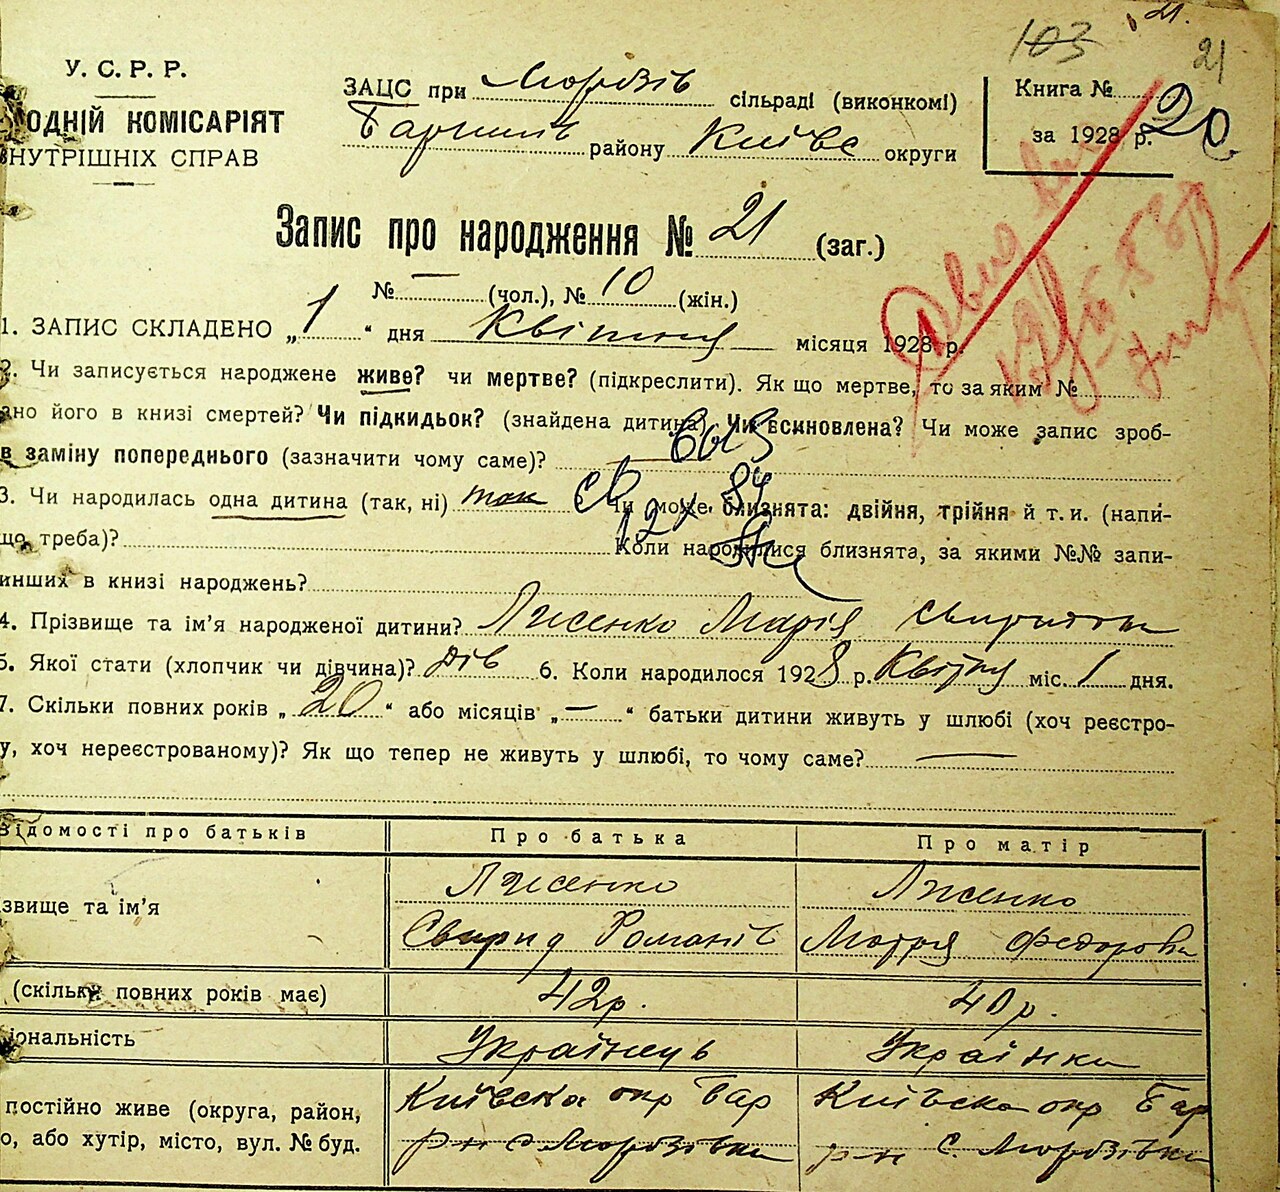 103
21.
21
У. С. Р. Р.
ОДНІЙ КОМІСАРІЯТ
ВНУТРІШНІХ СПРАВ
ЗАЦС при Морозів сільраді (виконкомі)
Баришів району Київс округи
Книга № 20
за 1928 р.
Запис про народження № 21 (заг.)
№ — (чол.), № 10 (жін.)
1. ЗАПИС СКЛАДЕНО „ 1 “ дня Квітня місяця 1928 р.
2. Чи записується народжене живе? чи мертве? (підкреслити). Як що мертве, то за яким №
ано його в книзі смертей? Чи підкидьок? (знайдена дитина) Чи всиновлена? Чи може запис зроб-
в заміну попереднього (зазначити чому саме)?
3. Чи народилась одна дитина (так, ні) так Чи може близнята: двійня, трійня й т. и. (напи-
що треба)? Коли народилися близнята, за якими №№ запи-
инших в книзі народжень?
4. Прізвище та ім’я народженої дитини? Лисенко Марія
5. Якої стати (хлопчик чи дівчина)? дів 6. Коли народилося 1928 р. Квітня міс. 1 дня.
7. Скільки повних років „ 20 “ або місяців „ — “ батьки дитини живуть у шлюбі (хоч реєстро-
у, хоч нереєстрованому)? Як що тепер не живуть у шлюбі, то чому саме? —
Відомості про батьків Про батька Про матір
звище та ім’я
Лисенко Лисенко
Свирид Романів Мотря Федоровн
(скільки повних років має) 42р. 40р.
іональність Українець Українка
постійно живе (округа, район, Київска окр Бар Київска окр Бар
о, або хутір, місто, вул. № буд. р-н с Морозівка р-н с. Морозівка